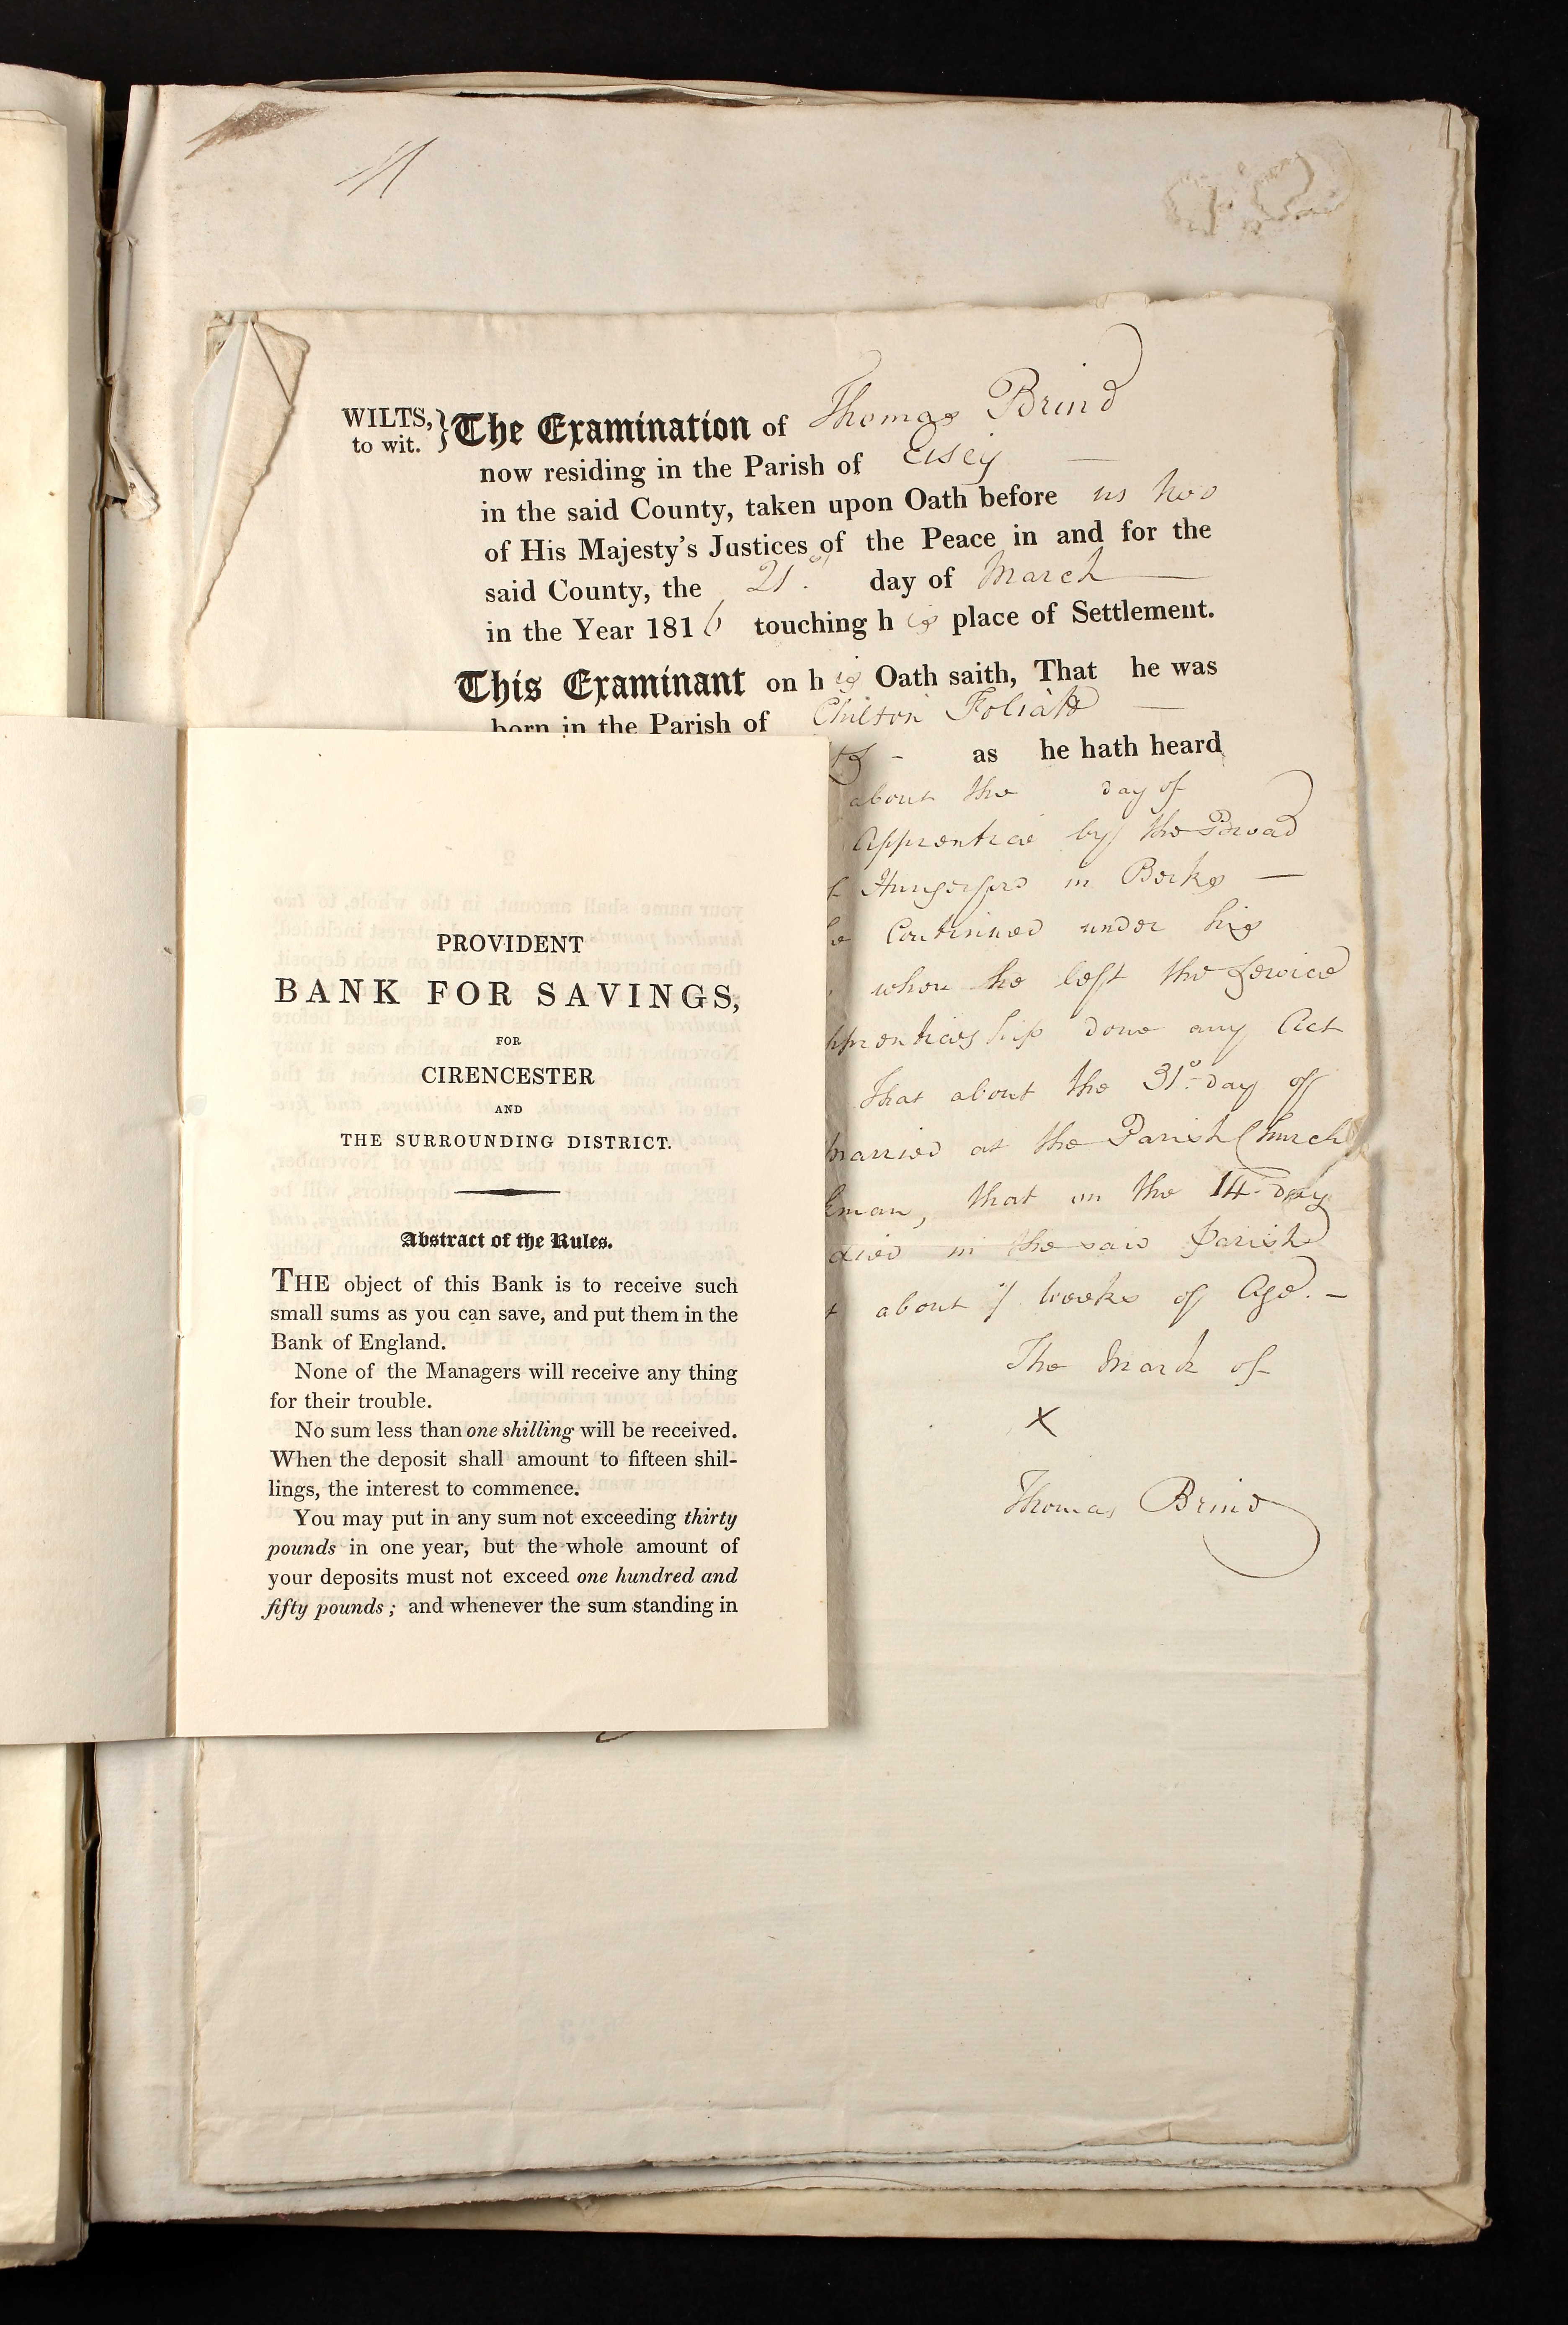 WILTS,
to wit.
The Examination of Thomas Brind
now residing in the Parish of Eisey
in the said County, taken upon Oath before us two
of His Majesty's Justices of the Peace in and for the
said County, the 21st day of March
in the Year 1816 touching his place of Settlement.
This Examinant on his Oath saith, That he was
born in the Parish of Chilton Foliatt
as he hath heard
about the day of
Apprentice by the Broad
Hungerford in Berks
Continued under his
when he left the Service
done any Act
That about the 31st day of
married at the Parish Church
that on the 14 day
died in the said Parish
about 7 weeks of Age.
The Mark of
X
Thomas Brind
PROVIDENT
BANK FOR SAVINGS,
FOR
CIRENCESTER
AND
THE SURROUNDING DISTRICT.
Abstract of the Rules.
THE object of this Bank is to receive such
small sums as you can save, and put them in the
Bank of England.
None of the Managers will receive any thing
for their trouble.
No sum less than one shilling will be received.
When the deposit shall amount to fifteen shil-
lings, the interest to commence.
You may put in any sum not exceeding thirty
pounds in one year, but the whole amount of
your deposits must not exceed one hundred and
fifty pounds; and whenever the sum standing in